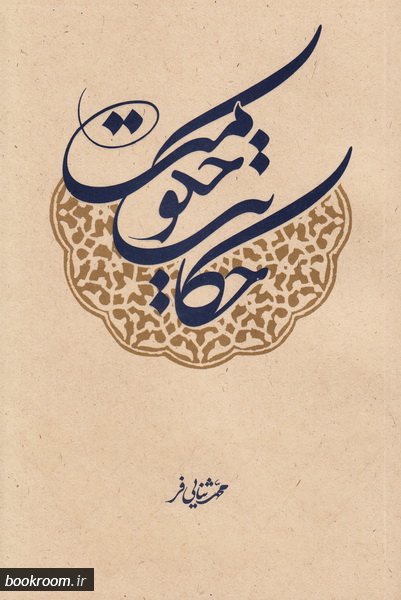 حکایت
حکومت
محمد ثنایی فر
bookroom.ir